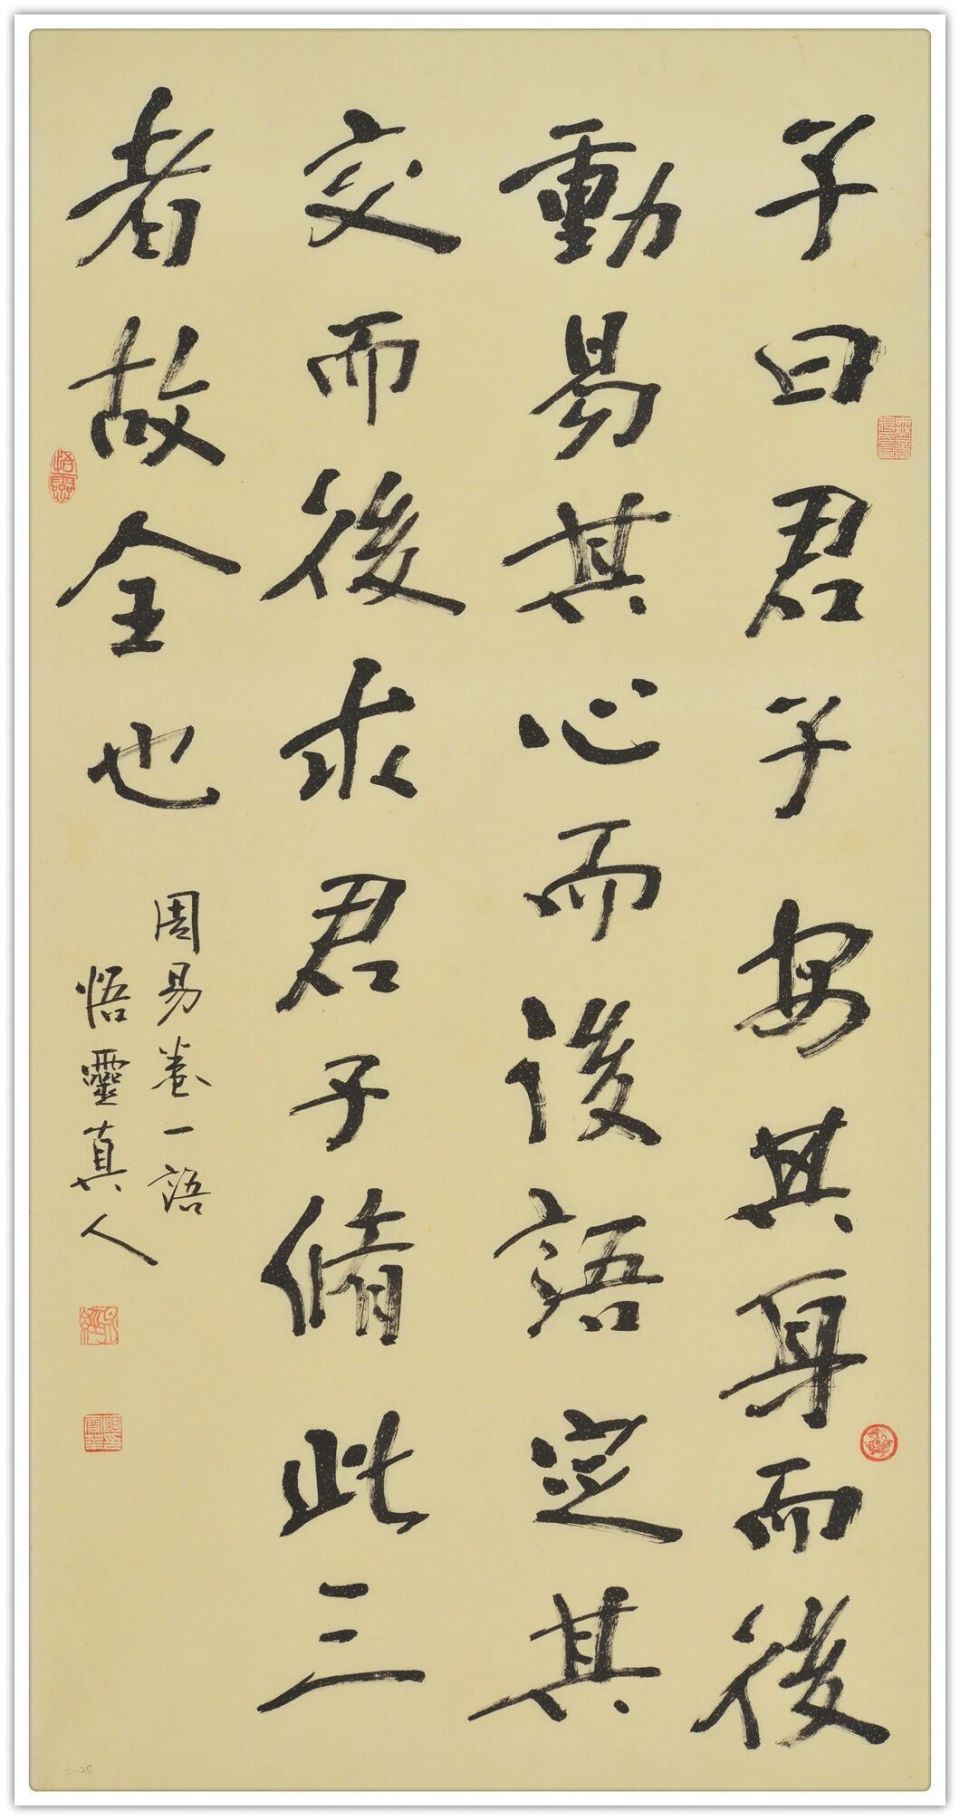 子曰君子安其身而後
動易其心而後語定其
交而後求君子脩此三
者故全也
周易卷一語
悟靈真人
二-25